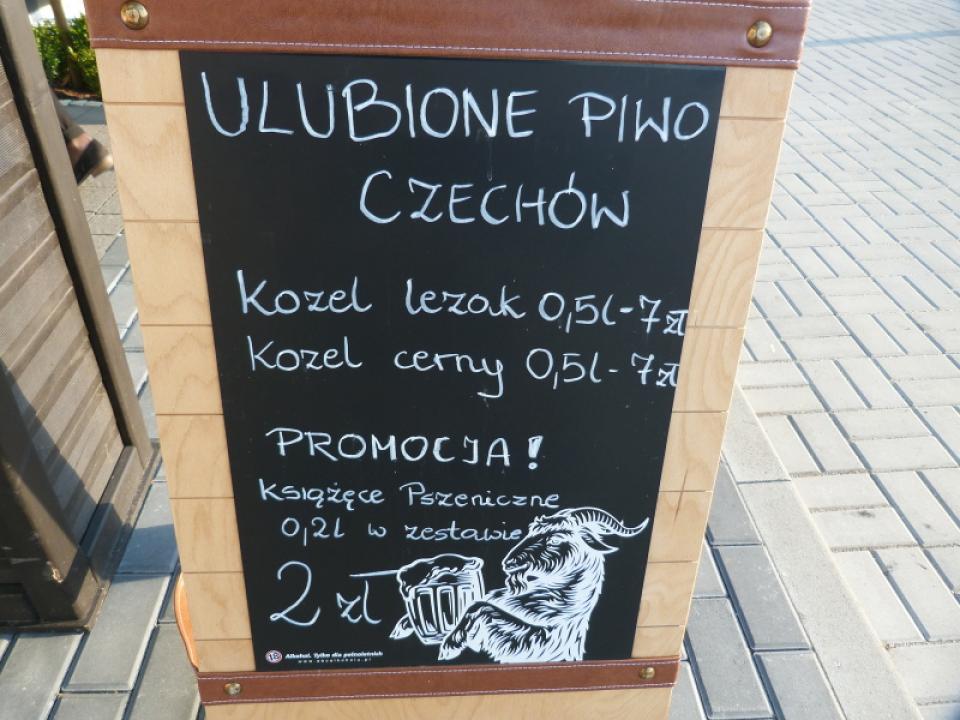 ULUBIONE PIWO
CZECHÓW
Kozel lezak 0,5l-7zł
Kozel cerny 0,5l-7zł
PROMOCJA!
Książęce Pszeniczne
0,2l w zestawie
2 zł
18 Alkohol. Tylko dla pełnoletnich
www.abcalkoholu.pl